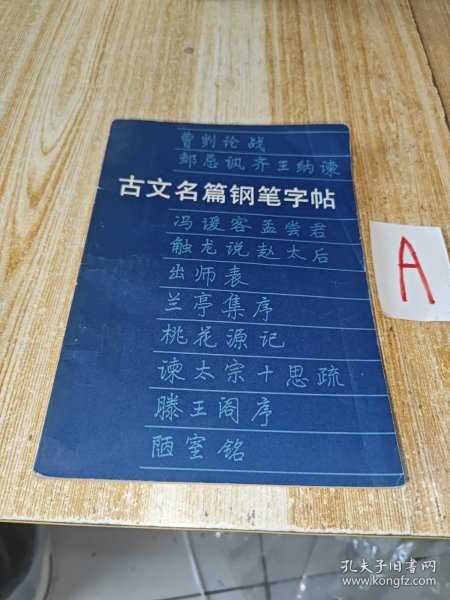 曹刿论战
邹忌讽齐王纳谏
古文名篇钢笔字帖
冯谖客孟尝君
触龙说赵太后
出师表
兰亭集序
桃花源记
谏太宗十思疏
滕王阁序
陋室铭
A
孔夫子旧书网
www.kongfz.com